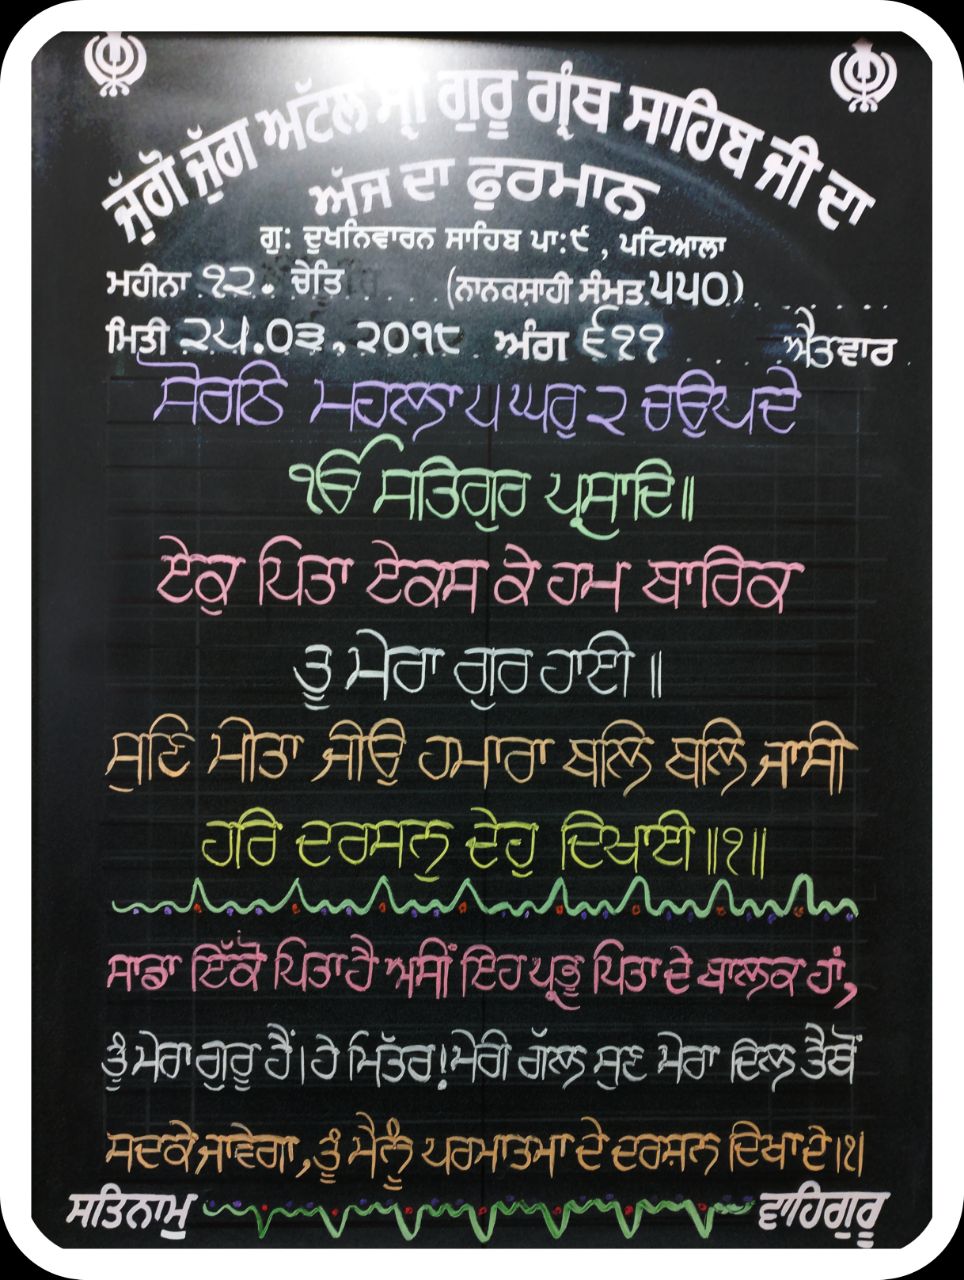 ਜੁੱਗੋ ਜੁੱਗ ਅਟੱਲ ਸ੍ਰੀ ਗੁਰੂ ਗ੍ਰੰਥ ਸਾਹਿਬ ਜੀ ਦਾ
ਅੱਜ ਦਾ ਫੁਰਮਾਨ
ਗੁ: ਦੁਖਨਿਵਾਰਨ ਸਾਹਿਬ ਪਾ:੯, ਪਟਿਆਲਾ
ਮਹੀਨਾ ੧੨. ਚੇਤਿ (ਨਾਨਕਸ਼ਾਹੀ ਸੰਮਤ ੫੫੦)
ਮਿਤੀ ੨੫.੦੩.੨੦੧੮ ਅੰਗ ੬੧੧ ਐਤਵਾਰ
ਸੋਰਠਿ ਮਹਲਾ ੫ ਘਰੁ ੨ ਚਉਪਦੇ
ੴ ਸਤਿਗੁਰ ਪ੍ਰਸਾਦਿ॥
ਏਕੁ ਪਿਤਾ ਏਕਸ ਕੇ ਹਮ ਬਾਰਿਕ
ਤੂ ਮੇਰਾ ਗੁਰ ਹਾਈ ॥
ਸੁਣਿ ਮੀਤਾ ਜੀਉ ਹਮਾਰਾ ਬਲਿ ਬਲਿ ਜਾਸੀ
ਹਰਿ ਦਰਸਨੁ ਦੇਹੁ ਦਿਖਾਈ ॥੧॥
ਸਾਡਾ ਇੱਕੋ ਪਿਤਾ ਹੈ ਅਸੀਂ ਇਹ ਪ੍ਰਭੂ ਪਿਤਾ ਦੇ ਬਾਲਕ ਹਾਂ,
ਤੂੰ ਮੇਰਾ ਗੁਰੂ ਹੈਂ। ਹੇ ਮਿੱਤਰ! ਮੇਰੀ ਗੱਲ ਸੁਣ ਮੇਰਾ ਦਿਲ ਤੈਥੋਂ
ਸਦਕੇ ਜਾਵੇਗਾ, ਤੂੰ ਮੈਨੂੰ ਪਰਮਾਤਮਾ ਦੇ ਦਰਸ਼ਨ ਦਿਖਾ ਦੇ।੧।
ਸਤਿਨਾਮੁ ਵਾਹਿਗੁਰੂ